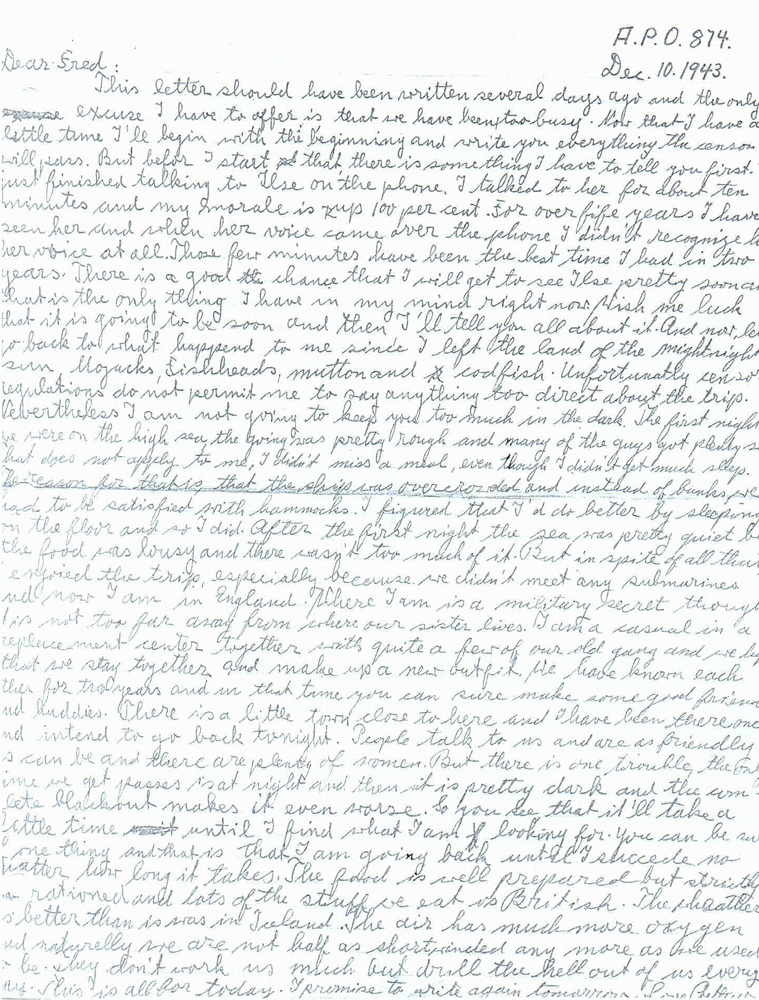 A.P.O. 874.
Dec. 10. 1943.
Dear Fred:
This letter should have been written several days ago and the only
excuse I have to offer is that we have been too busy. Now that I have a
little time I'll begin with the beginning and write you everything the censor
will pass. But befor I start that there is something I have to tell you first.
just finished talking to Ilse on the phone. I talked to her for about ten
minutes and my morale is up 100 per cent. For over fife years I have
seen her and when her voice came over the phone I didn't recognize
her voice at all. Those few minutes have been the best time I had in two
years. There is a good chance that I will get to see Ilse pretty soon
that is the only thing I have in my mind right now. Wish me luck
that it is going to be soon and then I'll tell you all about it. And now, le
go back to what happend to me since I left the land of the mightnight
sun, Mojacks, Fishheads, mutton and codfish. Unfortunatly censo
regulations do not permit me to say anything too direct about the trip.
Nevertheless I am not going to keep you too much in the dark. The first night
we were on the high sea, the going was pretty rough and many of the guys got plenty s
that does not apply to me, I didn't miss a meal, even though I didn't get much sleep.
The reason for that is, that the ship was overcrowded and instead of bunks, we
had to be satisfied with hammocks. I figured that I'd do better by sleeping
on the floor and so I did. After the first night the sea was pretty quiet b
the food was lousy and there wasn't too much of it. But in spite of all that
enjoied the trip, especially because we didn't meet any submarines
nd now I am in England. Where I am is a military secret though
is not too far away from where our sister lives. I am a casual in a
replacement center together with quite a few of our old gang and we
that we stay together and make up a new outfit. We have known each
ther for two years and in that time you can sure make some good frien
nd buddies. There is a little town close to here and I have been there onc
nd intend to go back tonight. People talk to us and are as friendly
s can be and there are plenty of women. But there is one trouble, the onl
ime we get passes is at night and then it is pretty dark and the com
lete blackout makes it even worse. So you see that it'll take a
little time until I find what I am looking for. You can be su
one thing and that is that I am going back until I succede no
matter how long it takes. The food is well prepared but strictly
rationed and lots of the stuff we eat is British. The wheather
s better than is was in Iceland. The air has much more oxygen
nd naturelly we are not half as shortwinded any more as we used
be. They don't work us much but drill the hell out of us every
day. This is all for today. I promise to write again tomorrow.